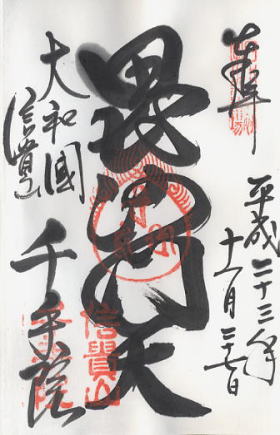 奉拝
平成二十三年
十一月二十七日
毘沙門天
大和國
信貴山
千手院
信貴山